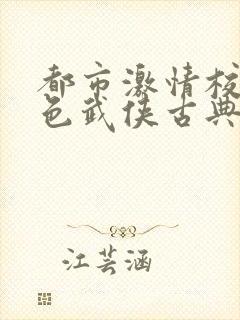 都市激情校
色武侠古典
江芸涵